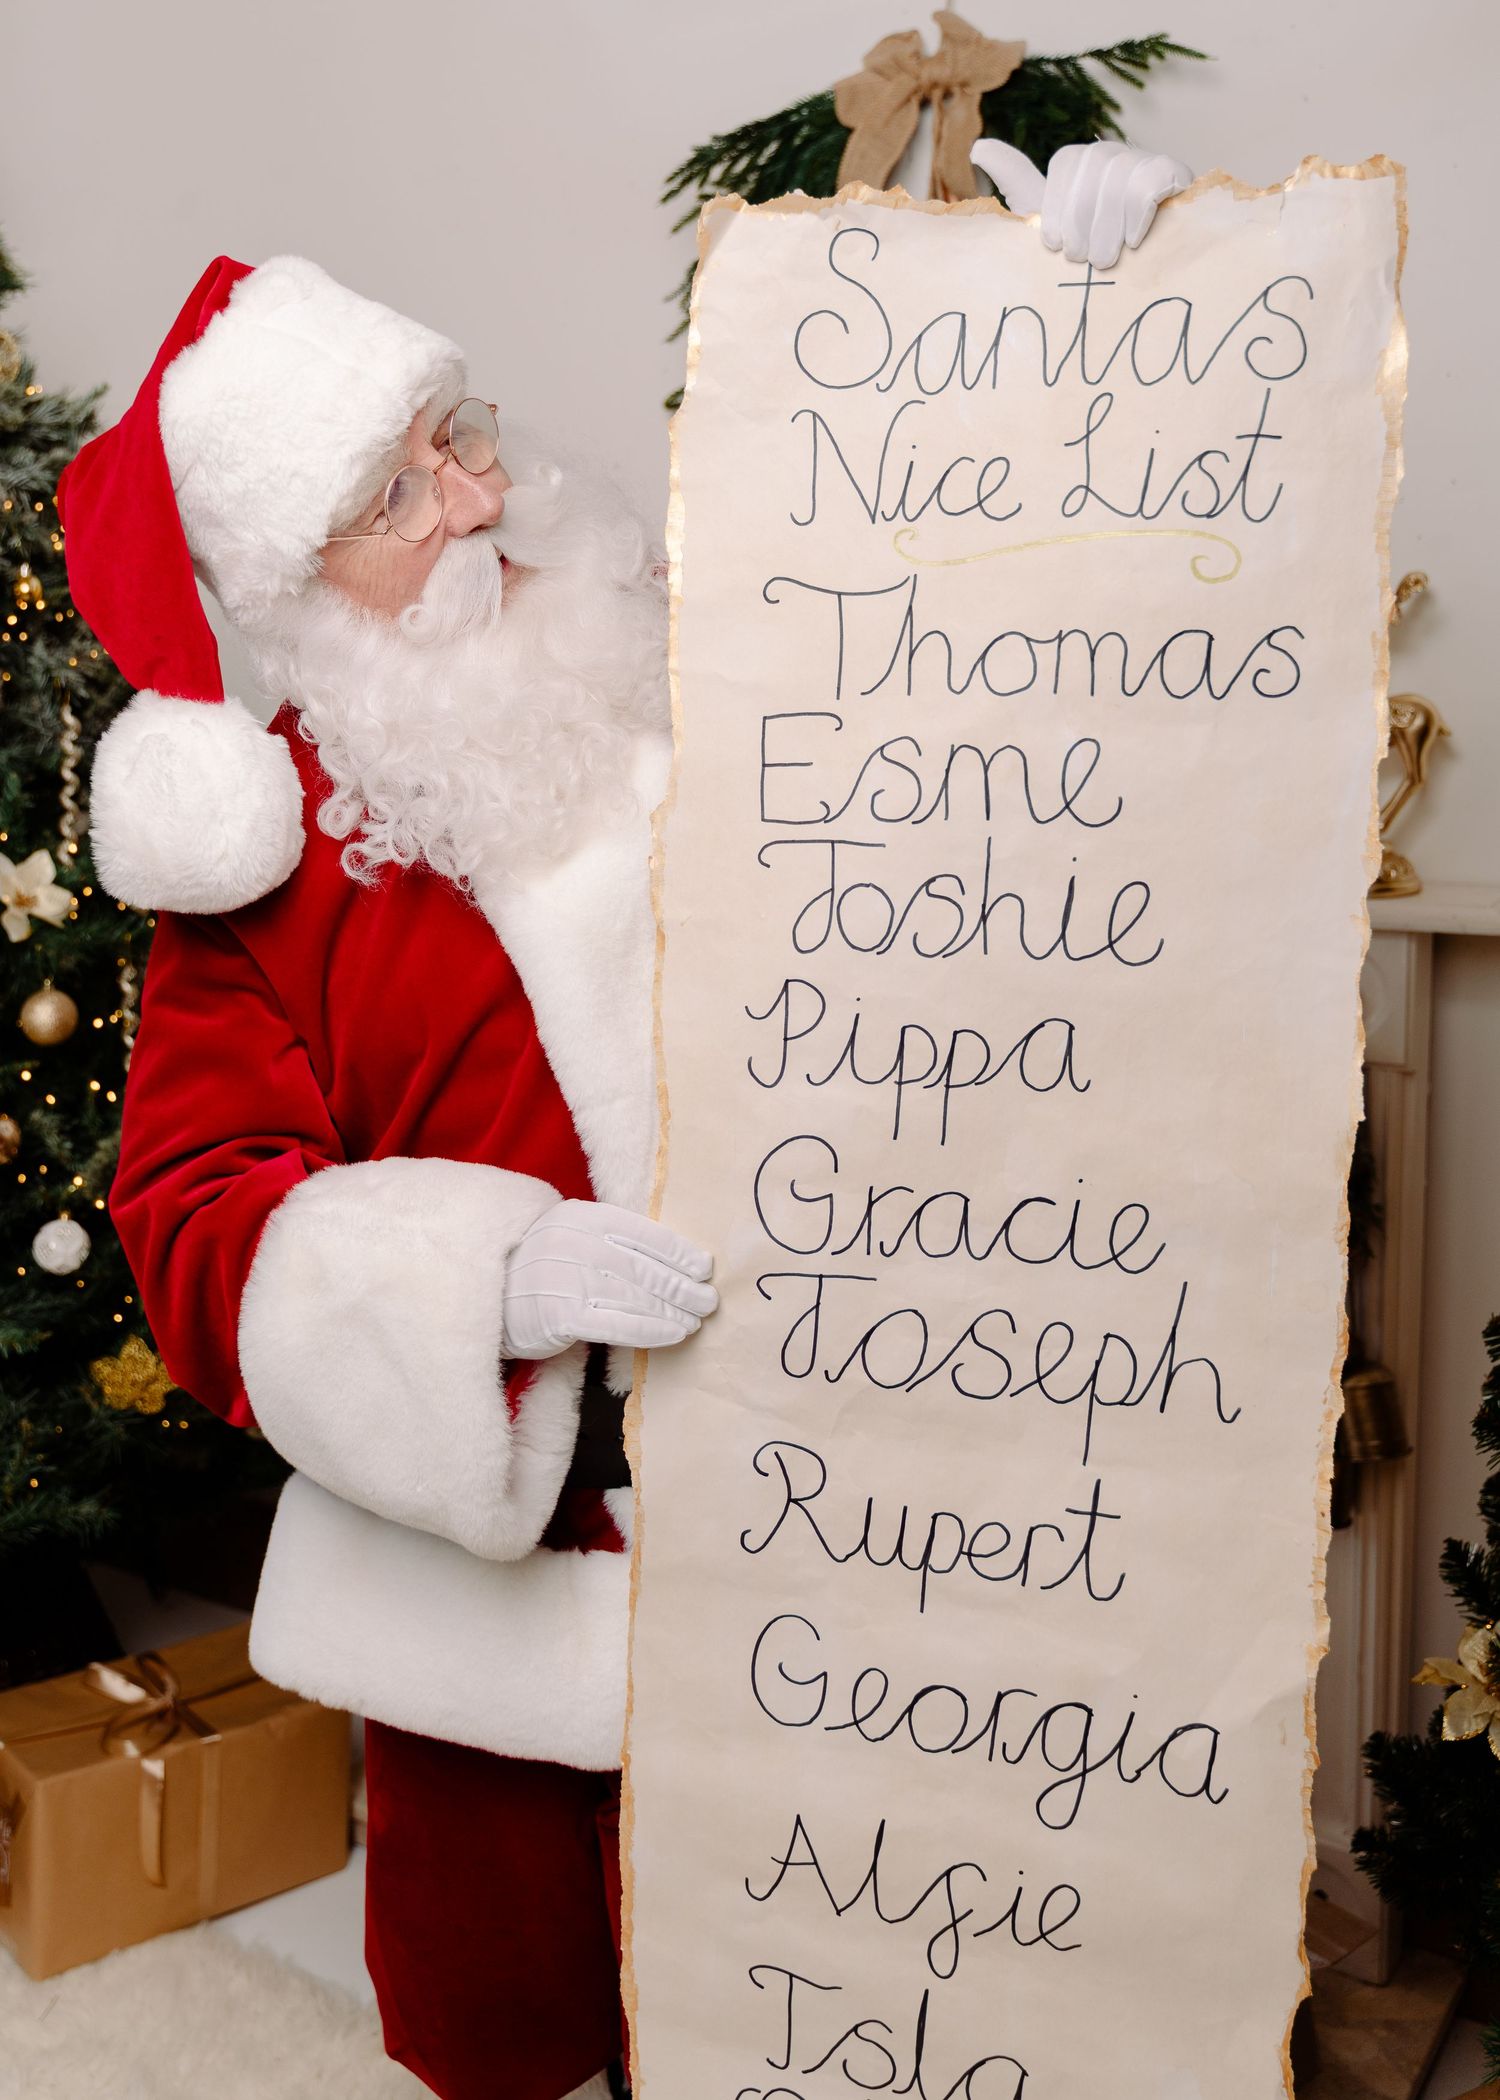 Santas
Nice List
Thomas
Esme
Joshie
Pippa
Gracie
Joseph
Rupert
Georgia
Alfie
Isla